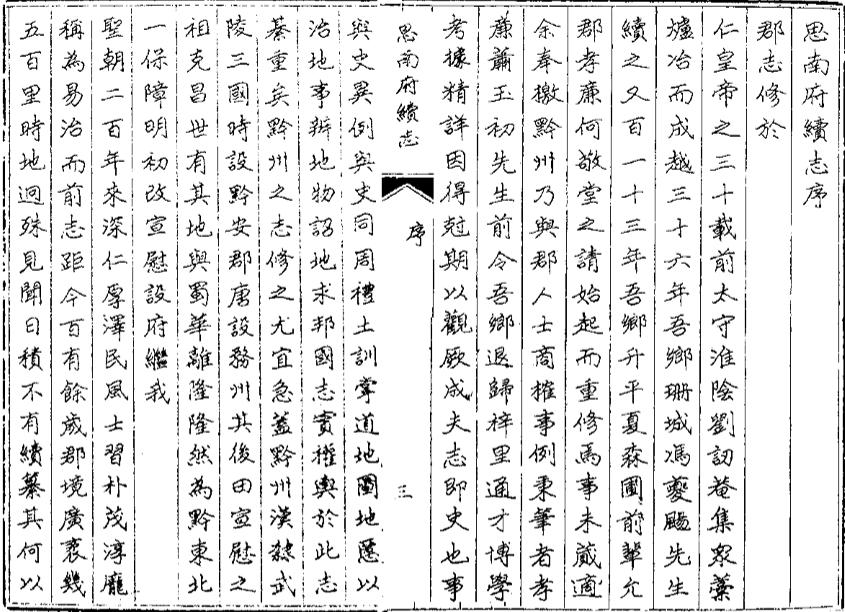 思南府續志序
郡志修於
仁皇帝之三十載前太守淮陰劉訒菴集眾藁
爐冶而成越三十六年吾鄉珊城馮夔颺先生
續之又百一十三年吾鄉升平夏森圃前輩允
郡孝廉何敬堂之請始起而重修焉事未蕆適
余奉檄黔州乃與郡人士商榷事例秉筆者孝
廉蕭玉初先生前令吾鄉退歸梓里通才博學
考據精詳因得尅期以觀厥成夫志即史也事
思南府續志
序
三
與史異例與史同周禮土訓掌道地圖地慝以
治地事辨地物詔地求邦國志實權輿於此志
綦重矣黔州之志修之尤宜急蓋黔州漢隸武
陵三國時設黔安郡唐設務州其後田宣慰之
祖克昌世有其地與蜀華離隆隆然為黔東北
一保障明初改宣慰設府繼我
聖朝二百年來深仁厚澤民風士習朴茂淳龐
稱為易治而前志距今百有餘歲郡境廣袤幾
五百里時地迥殊見聞日積不有續纂其何以